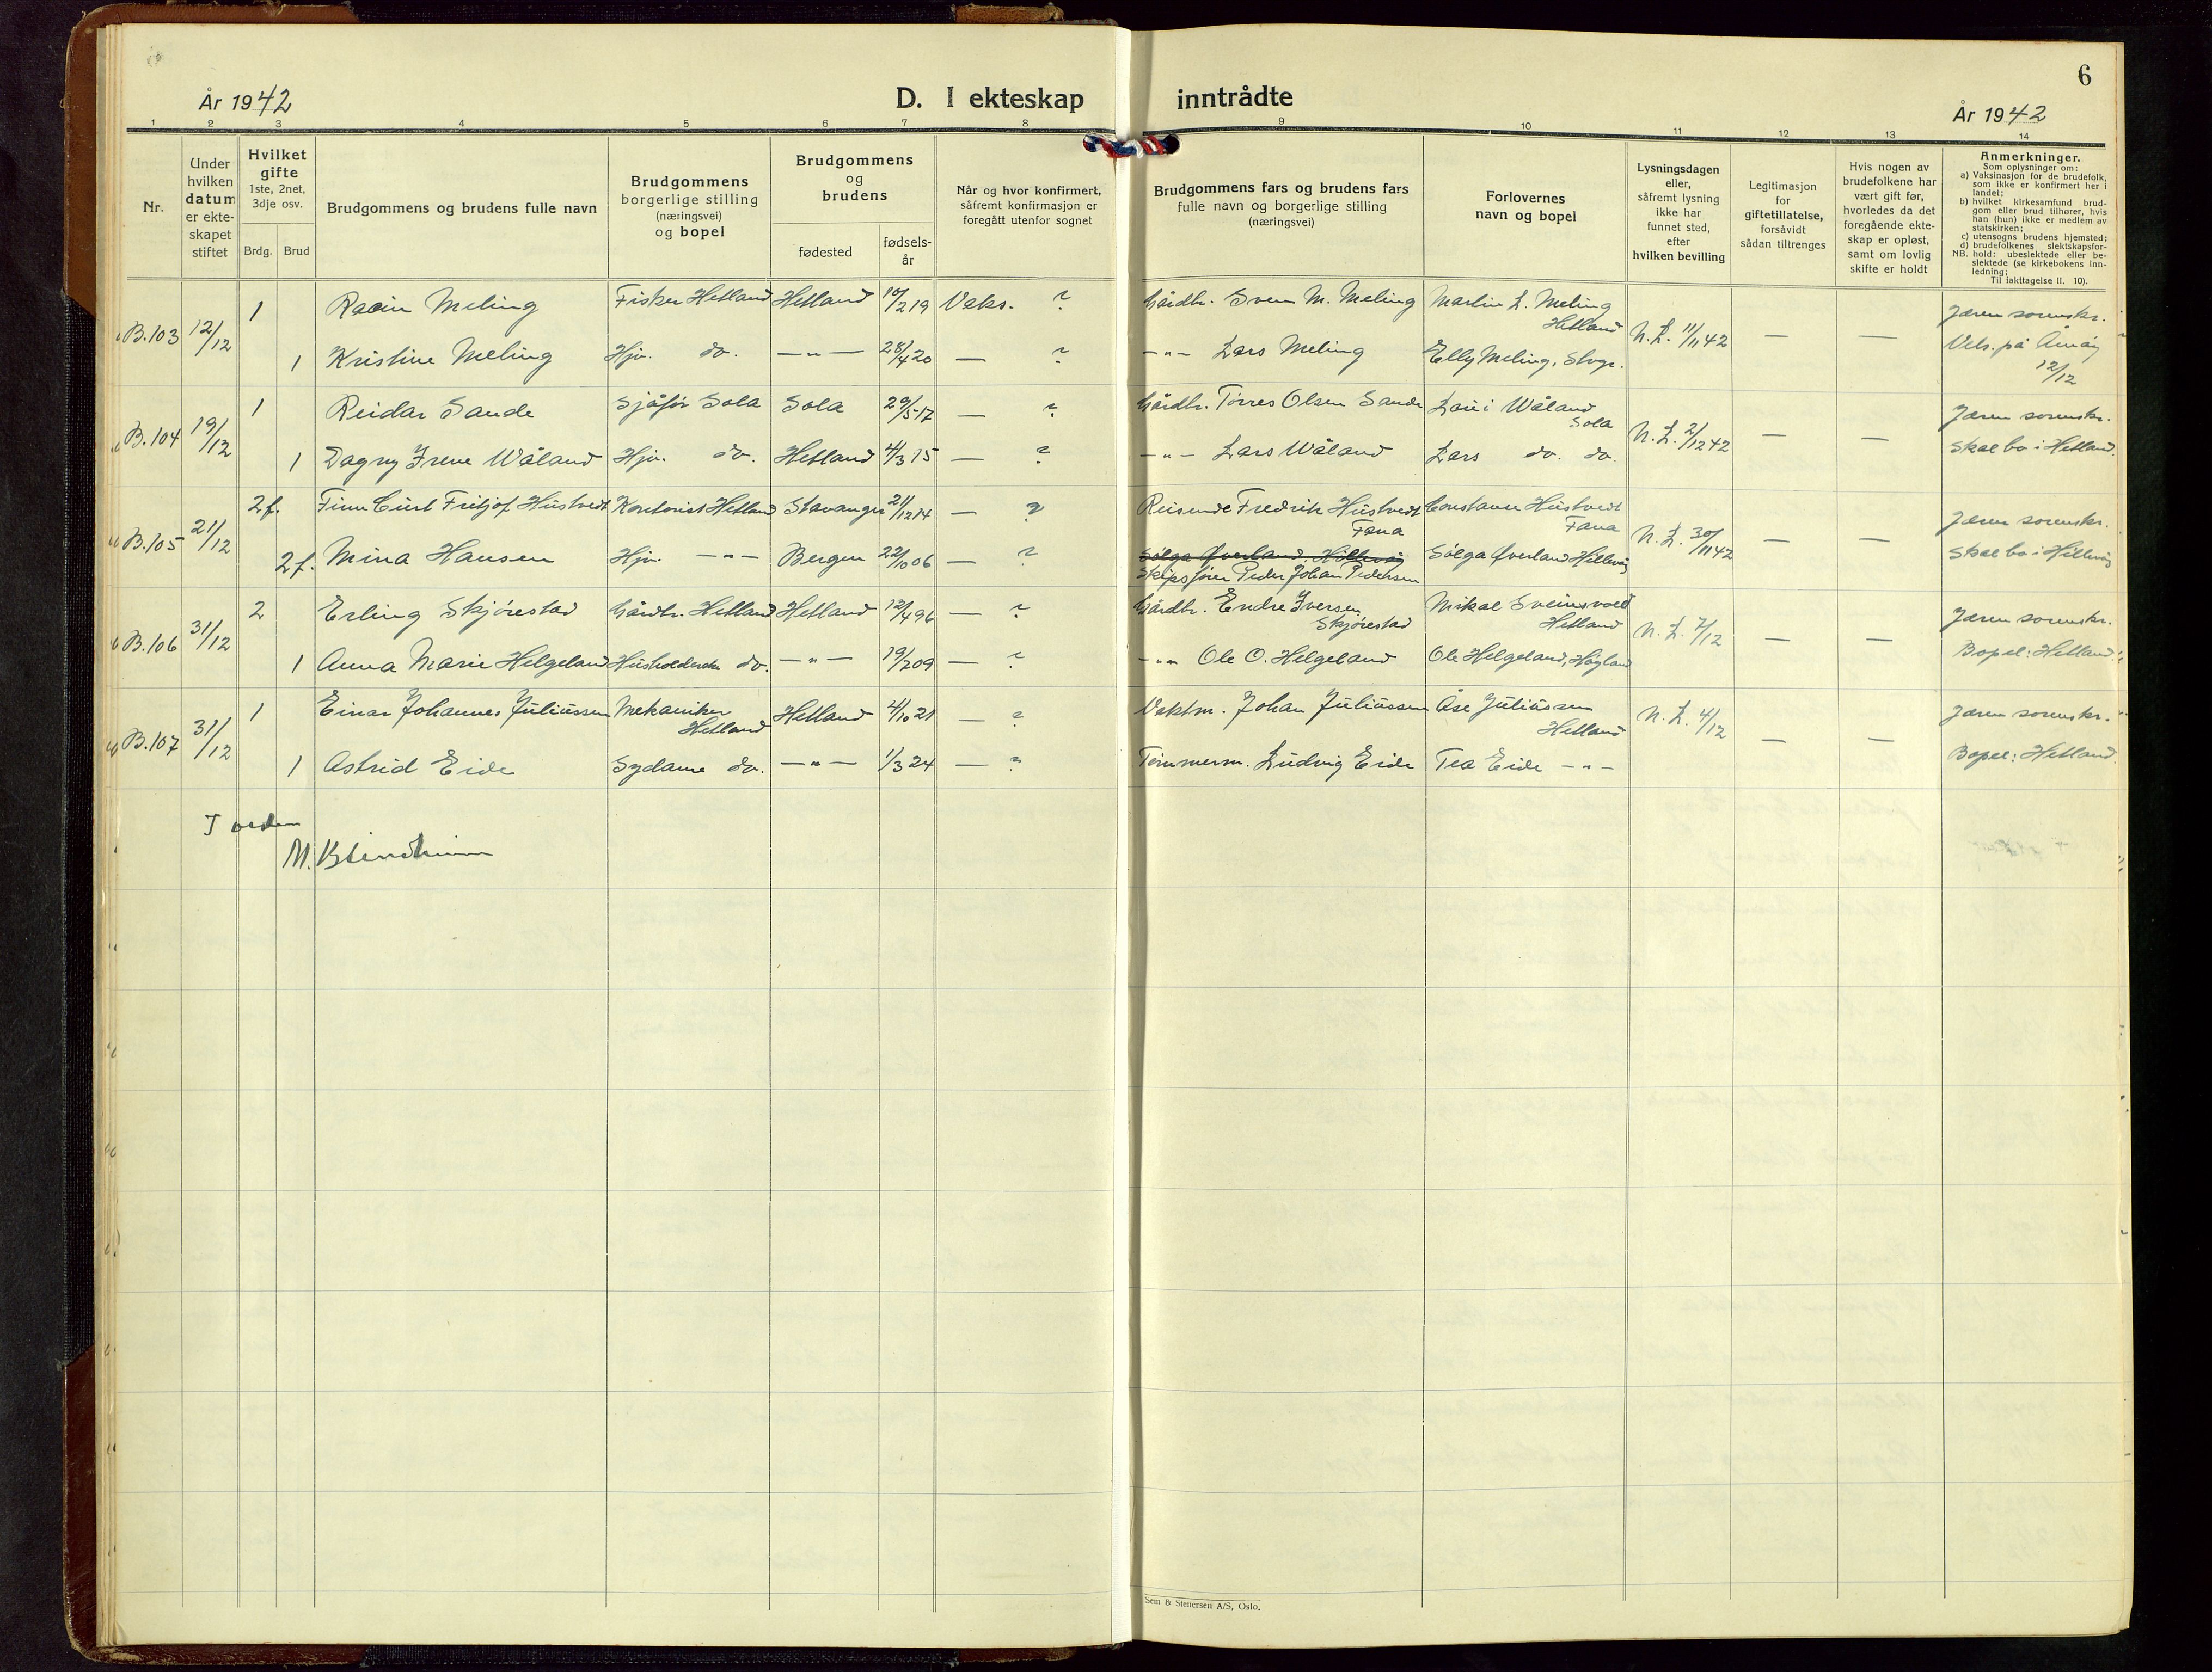 År 1942
D. I ekteskap inntrådte
År 1942
6
1 2 3 4 5 6 7 8 9 10 11 12 13 14
Nr.
Under hvilken datum er ekte-skapet stiftet
Hvilket gifte 1ste, 2net, 3dje osv.
Brdg. Brud
Brudgommens og brudens fulle navn
Brudgommens borgerlige stilling (næringsvei) og bopel
Brudgommens og brudens
fødested
fødsels-år
Når og hvor konfirmert, såfremt konfirmasjon er foregått utenfor sognet
Brudgommens fars og brudens fars fulle navn og borgerlige stilling (næringsvei)
Forlovernes navn og bopel
Lysningsdagen eller, såfremt lysning ikke har funnet sted, efter hvilken bevilling
Legitimasjon for giftetillatelse, forsåvidt sådan tiltrenges
Hvis nogen av brudefolkene har vært gift før, hvorledes da det foregående ekte-skap er opløst, samt om lovlig skifte er holdt
Anmerkninger.
Som oplysninger om:
a) Vaksinasjon for de brudefolk, som ikke er konfirmert her i landet;
b) hvilket kirkesamfund brud-gom eller brud tilhører, hvis han (hun) ikke er medlem av statskirken;
c) utensogns brudens hjemsted;
d) brudefolkenes slektskapsfor-hold: ubeslektede eller be-slektede (se kirkebokens inn-ledning;
NB.
Til iakttagelse II. 10).
B.103 12/12 1 Meling Fisker Hetland Hetland 19 Vaks. ? Gårdbr. Sven M. Meling Martin L. Meling Hetland N.L. 11/11 42 — — Jæren sorenskr.
1 Kristine Meling Hjv. do. —"— 28/4 20 — ? —"— Lars Meling Elly Meling, Stvgr. Vels. på Åmøy 12/12
B.104 19/12 1 Reidar Sande Sjåfør Sola Sola 29/5 17 — ? Gårdbr. Tørres Olsen Sande Wåland Sola N.L. 2/12 42 — — Jæren sorenskr.
1 Dagny Irene Wåland Hjv. do. Hetland 4/3 15 — ? —"— Lars Wåland Lars do. do. Skal bo i Hetland.
B.105 21/12 2 f. Finn Curt Fritjof Hustvedt Kontorist Hetland Stavanger 21/12 14 — ? Reisende Fredrik Hustvedt Fana Constance Hustvedt Fana N.L. 30/11 42 — — Jæren sorenskr.
2 f. Mina Hansen Hjv. —"— Bergen 22/10 06 — ? Solga Øverland, Hillevåg Solga Øverland Hillevåg Skal bo i Hillevåg
Skipsfører Peder Johan Pedersen
B.106 31/12 2 Erling Skjørestad Gårdbr. Hetland Hetland 12/4 96 — ? Gårdbr. Endre Iversen Skjørestad Mikal Sveinsvoll Hetland N.L. 7/12 — — Jæren sorenskr.
1 Anna Marie Helgeland do. —"— 19/2 09 — ? —"— Ole O. Helgeland Ole Helgeland, Høgland Bopel: Hetland.
B.107 31/12 1 Einar Johannes Juliussen Mekaniker Hetland Hetland 4/10 21 — ? Vaktm. Johan Juliussen Åse Juliussen Hetland N.L. 4/12 — — Jæren sorenskr.
1 Astrid Eide Sydame do. —"— 1/3 24 — ? Tømmerm. Ludvig Eide Tea Eide —"— Bopel: Hetland.
I orden
M. Blindheim
Sem & Stenersen A/S, Oslo.